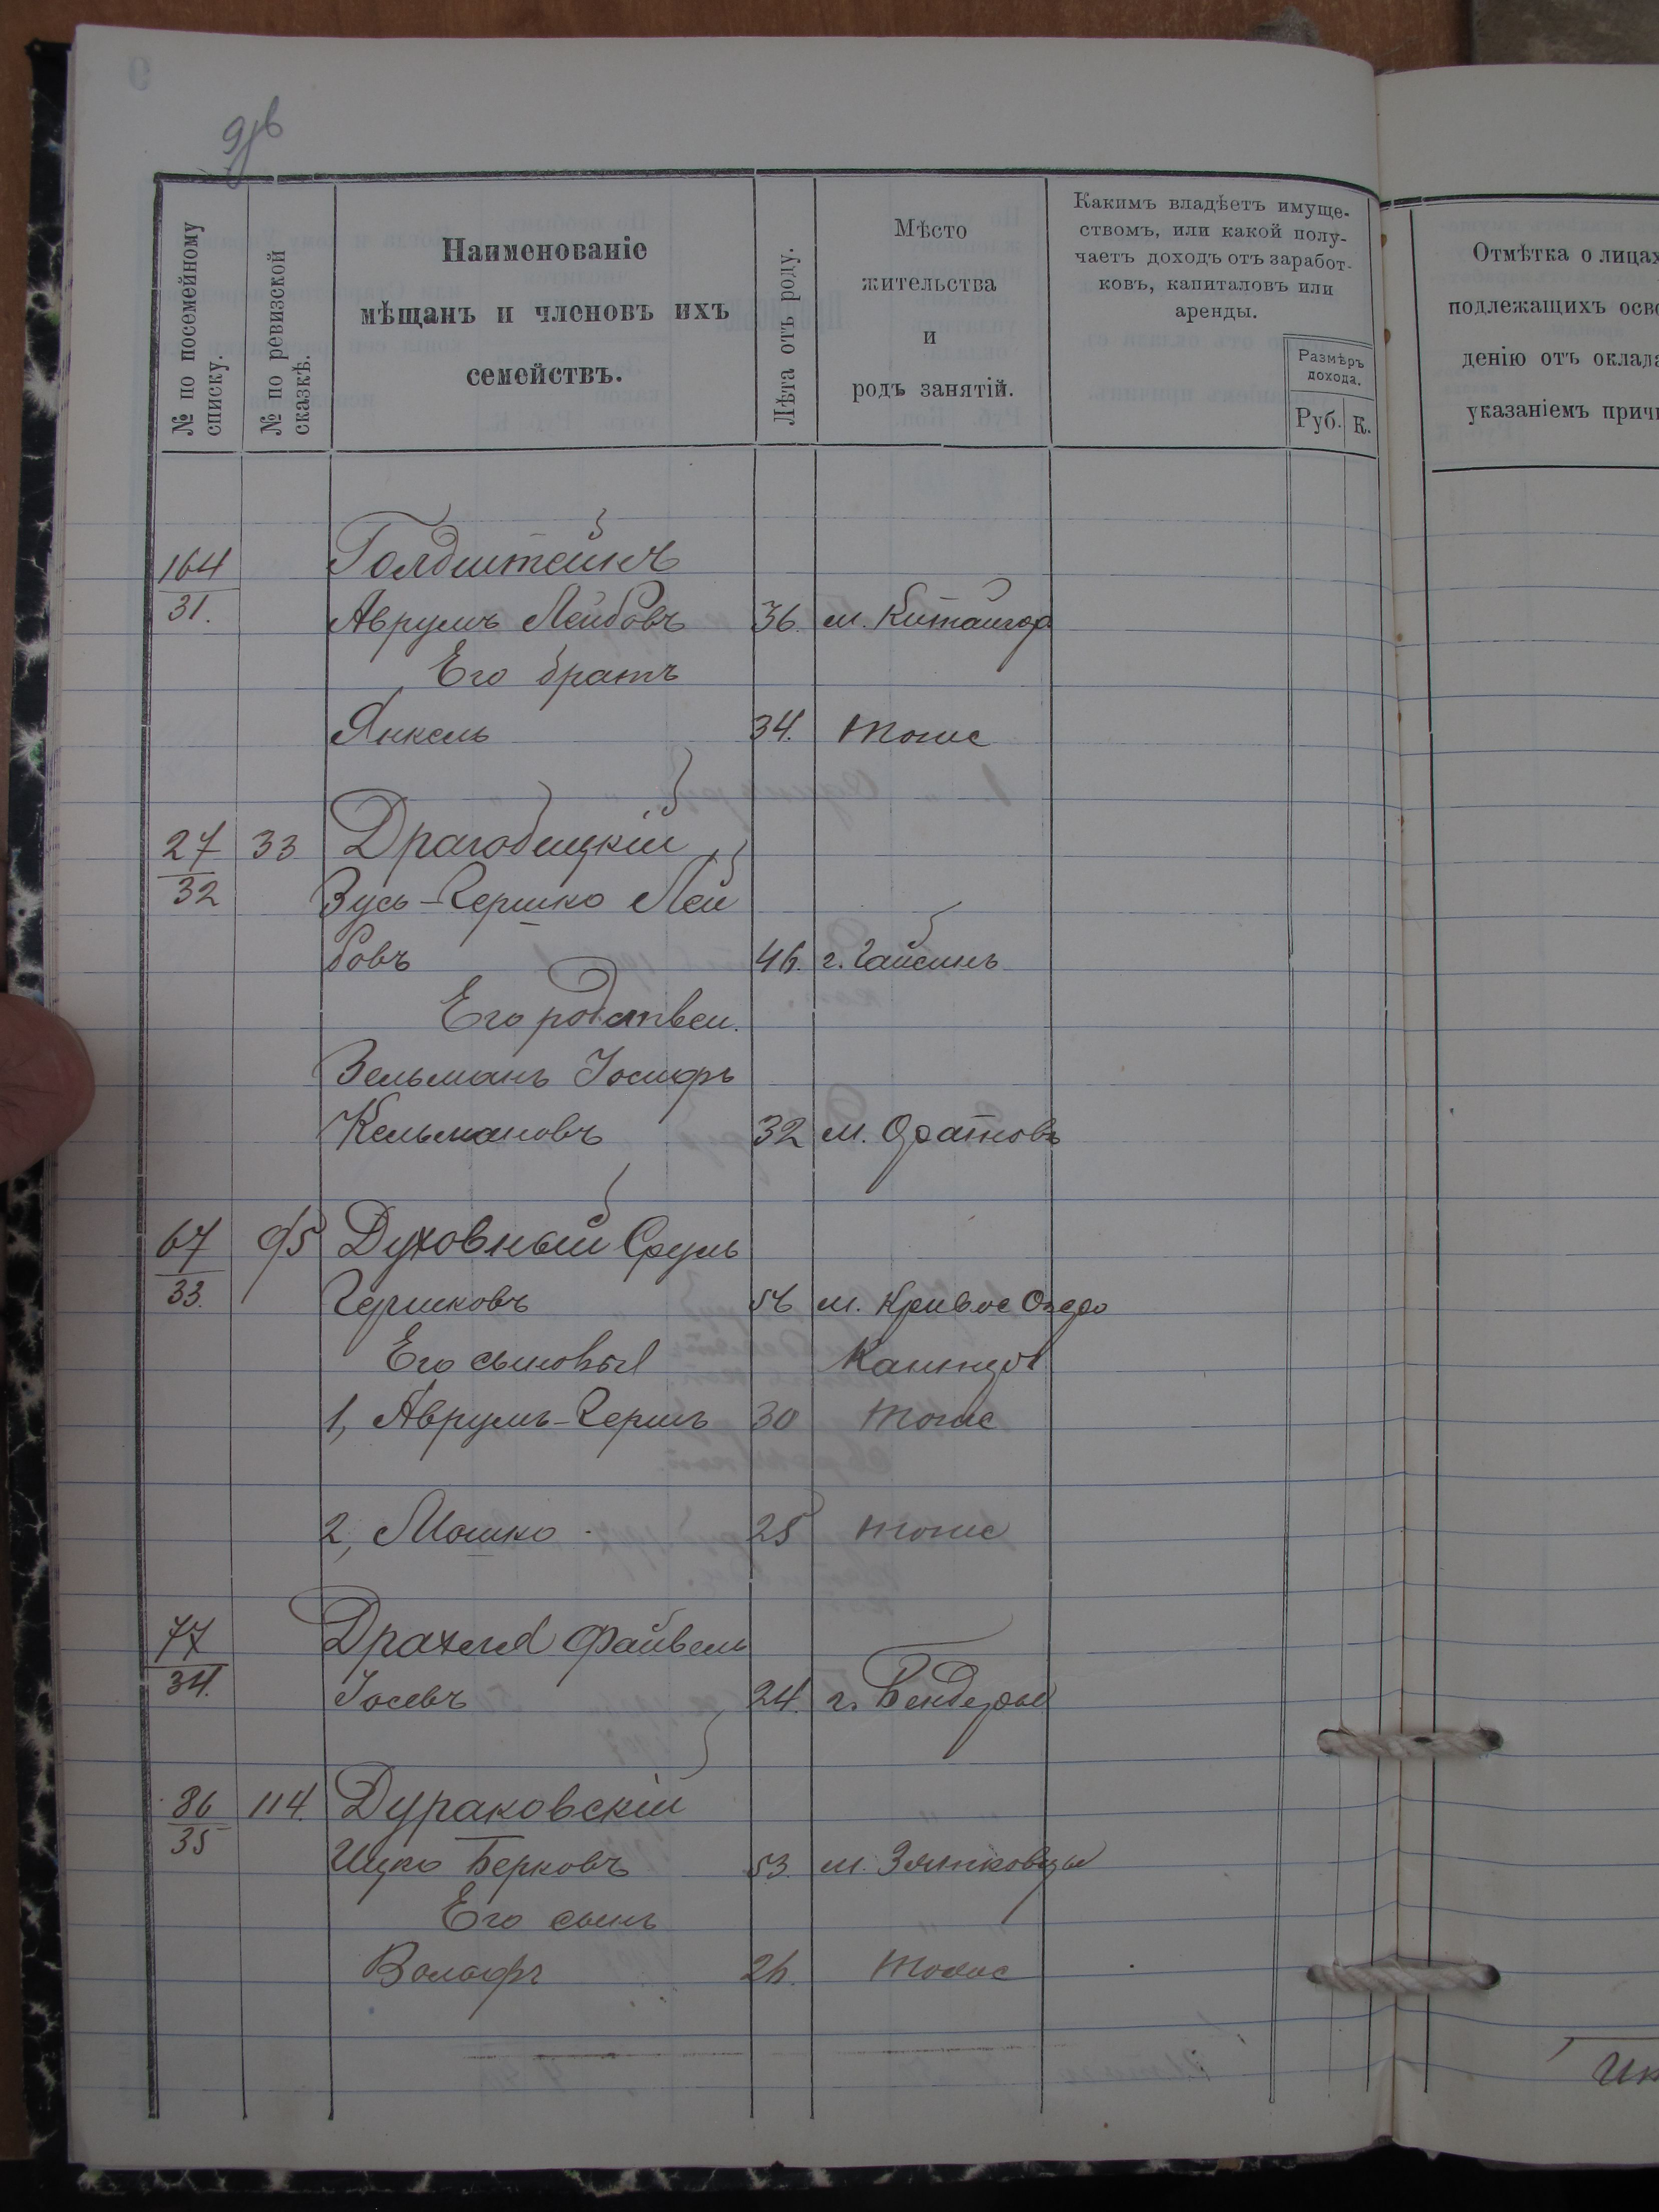 9/в
№ по посемейному списку.
№ по ревизской сказкѣ.
Наименованіе
мѣщанъ и членовъ ихъ
семействъ.
Лѣта отъ роду.
Мѣсто
жительства
и
родъ занятій.
Какимъ владѣетъ имуще-
ствомъ, или какой полу-
чаетъ доходъ отъ заработ-
ковъ, капиталовъ или
аренды.
Размѣръ
дохода.
Руб. К.
Отмѣтка о лицах
подлежащихъ осво
денію отъ оклада
указаніемъ прич
164 Голдштейнъ
31. Аврумъ Лейбовъ 36. м. Китайгор
Его братъ
Янкель 34. тоже
27 33 Драгобецкій
32 Зусь-Гершко Лей
бовъ 46. г. Гайсинъ
Его родствен.
Зельманъ Іосифъ
Кельмановъ 32 м. Оратовъ
67 95 Духовный Сруль
33. Гершковъ 56 м. Кривое Озеро
Его сыновья
1, Аврумъ-Гершъ 30 тоже
2, Мошко 25 тоже
77 Драхля Файвель
34. Іосевъ 24. г. Бендеры
86 114. Дураковскій
35 Ицко Берковъ 53. м. Зятковцы
Его сынъ
Вольфъ 26. тоже